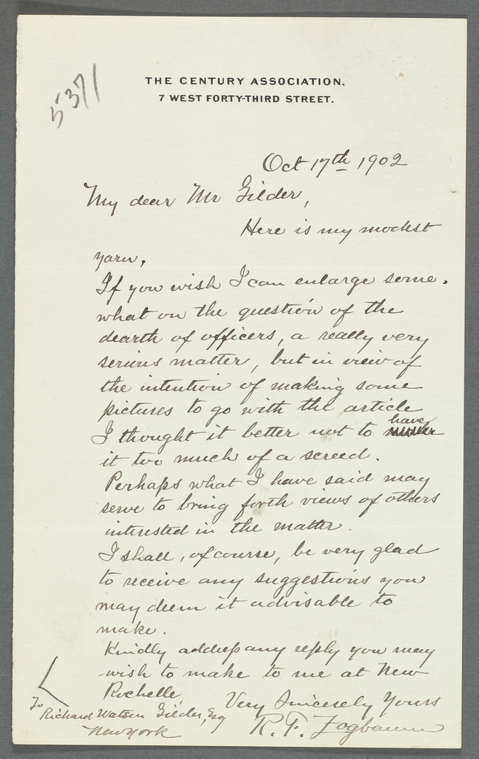 5371
THE CENTURY ASSOCIATION.
7 WEST FORTY-THIRD STREET.
Oct 17th 1902
My dear Mr Gilder,
Here is my modest
yarn.
If you wish I can enlarge some-
what on the question of the
dearth of officers, a really very
serious matter, but in view of
the intention of making some
pictures to go with the article
I thought it better not to have
it too much of a screed.
Perhaps what I have said may
serve to bring forth views of others
interested in the matter.
I shall, of course, be very glad
to receive any suggestions you
may deem it advisable to
make.
Kindly address any reply you may
wish to make to me at New
Rochelle
Very Sincerely Yours
R. F. Zogbaum
To
Richard Watson Gilder, Esq
New York